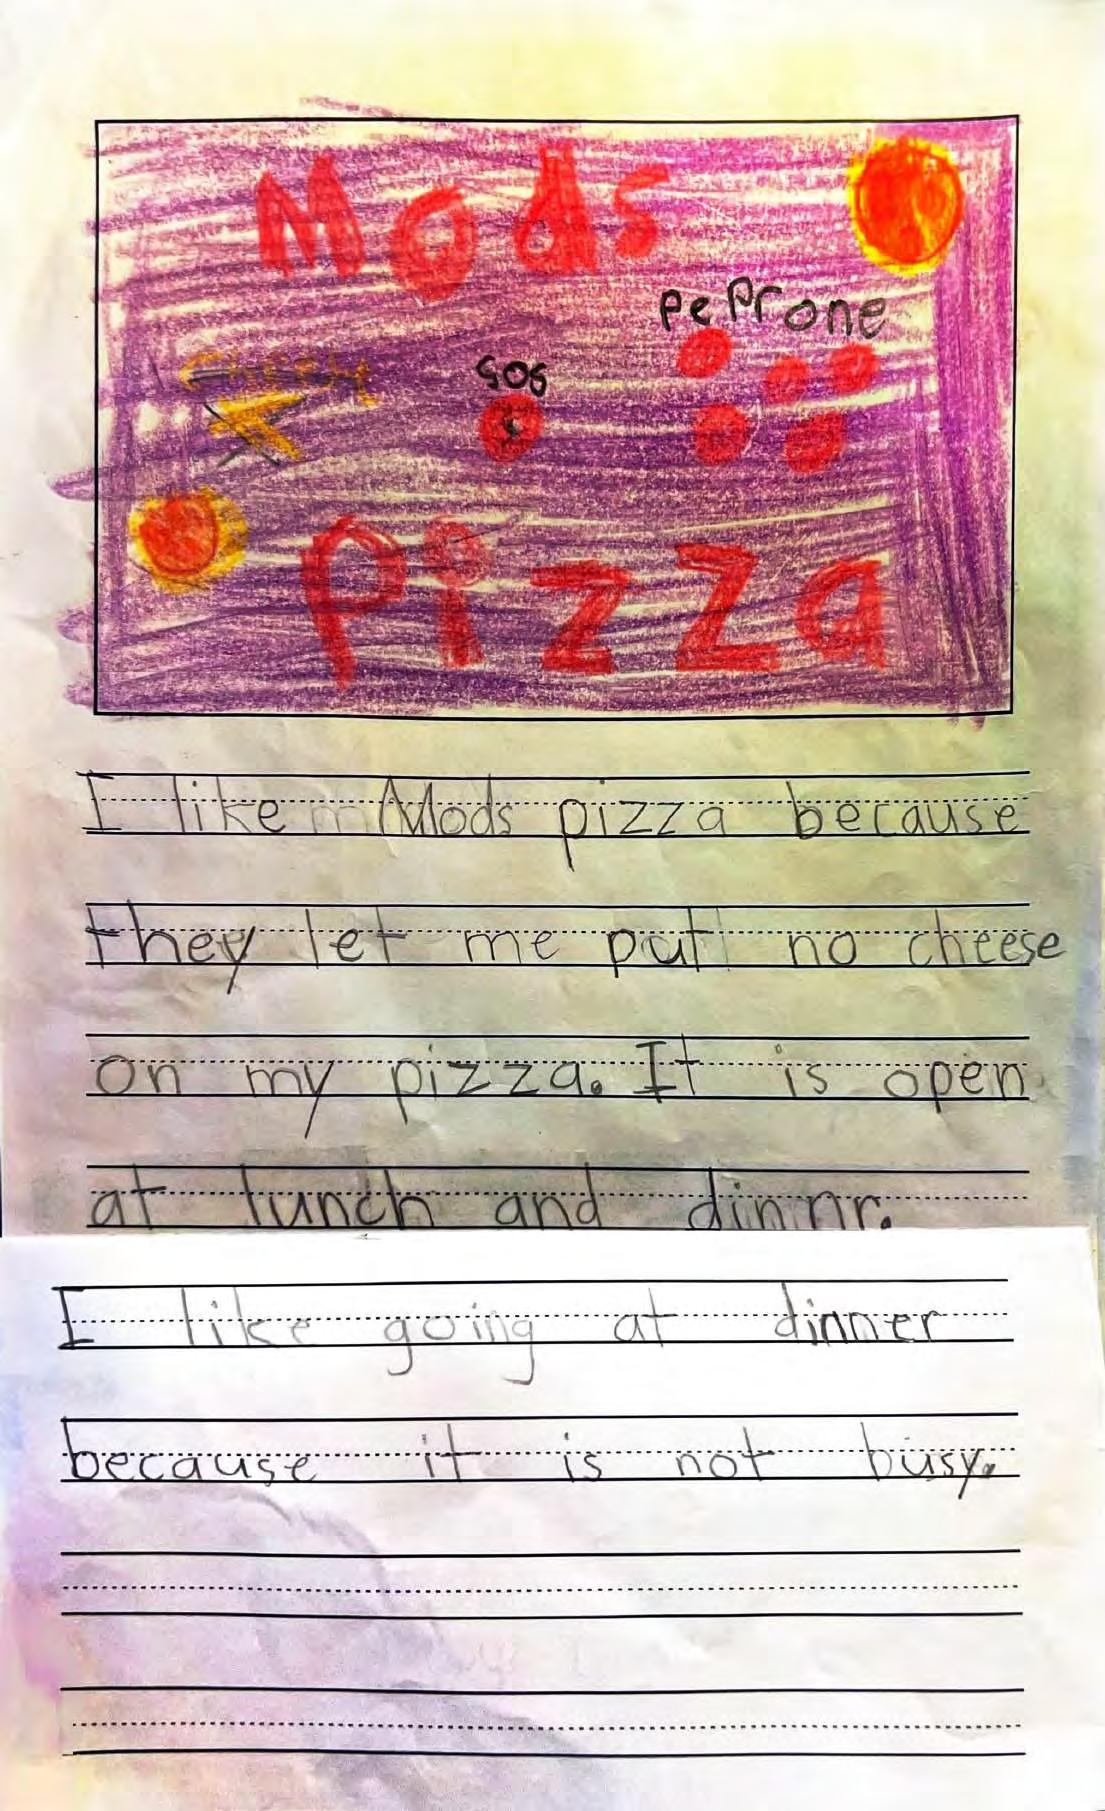 Mods
pePProne
cheese
sos
Pizza
I like Mods pizza because
they let me put no cheese
on my pizza. It is open
at lunch and dinnr.
I like going at dinner
because it is not busy.